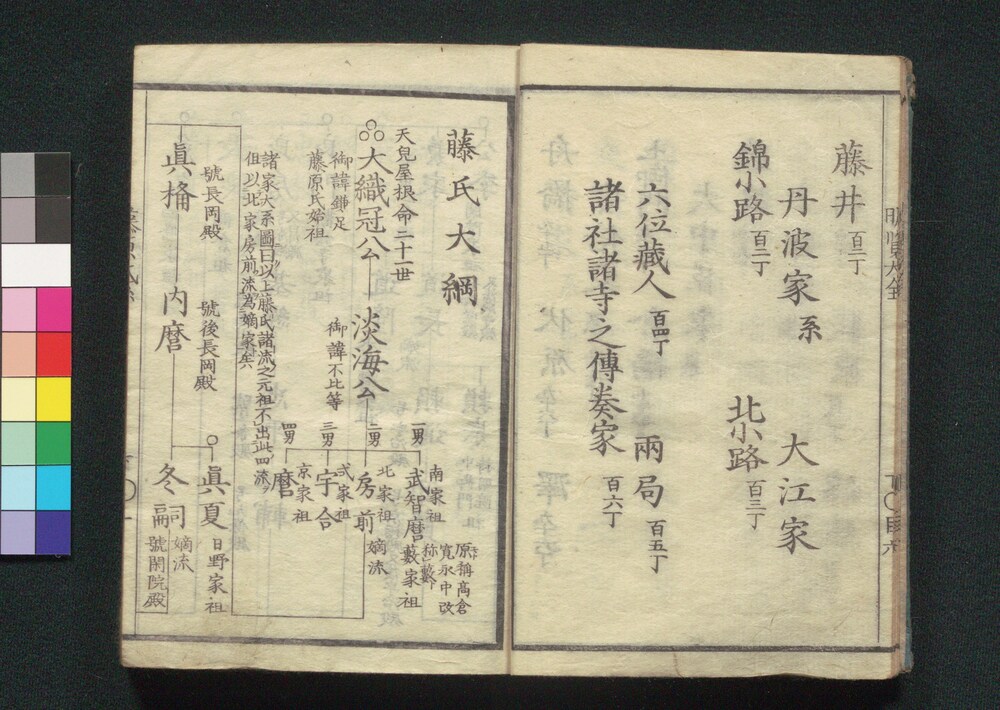 藤井 百二丁
丹波家系
錦小路 百二丁
大江家
北小路 百三丁
六位藏人 百四丁
兩局 百五丁
諸社諸寺之傳奏家 百六丁
藤氏大綱
天兒屋根命二十一世
大織冠公
御諱鎌足
藤原氏始祖
淡海公
御諱不比等
一男
武智麿
南家祖
藪家祖
原稱高倉
寛永中改
称藪
二男
房前
北家祖
嫡流
三男
宇合
式家祖
四男
麿
京家祖
諸家大系圖曰以上藤氏諸流之元祖不出此四流
但以北家房前流為嫡家矣
眞楯
號長岡殿
内麿
號後長岡殿
眞夏
日野家祖
冬嗣
嫡流
號閑院殿